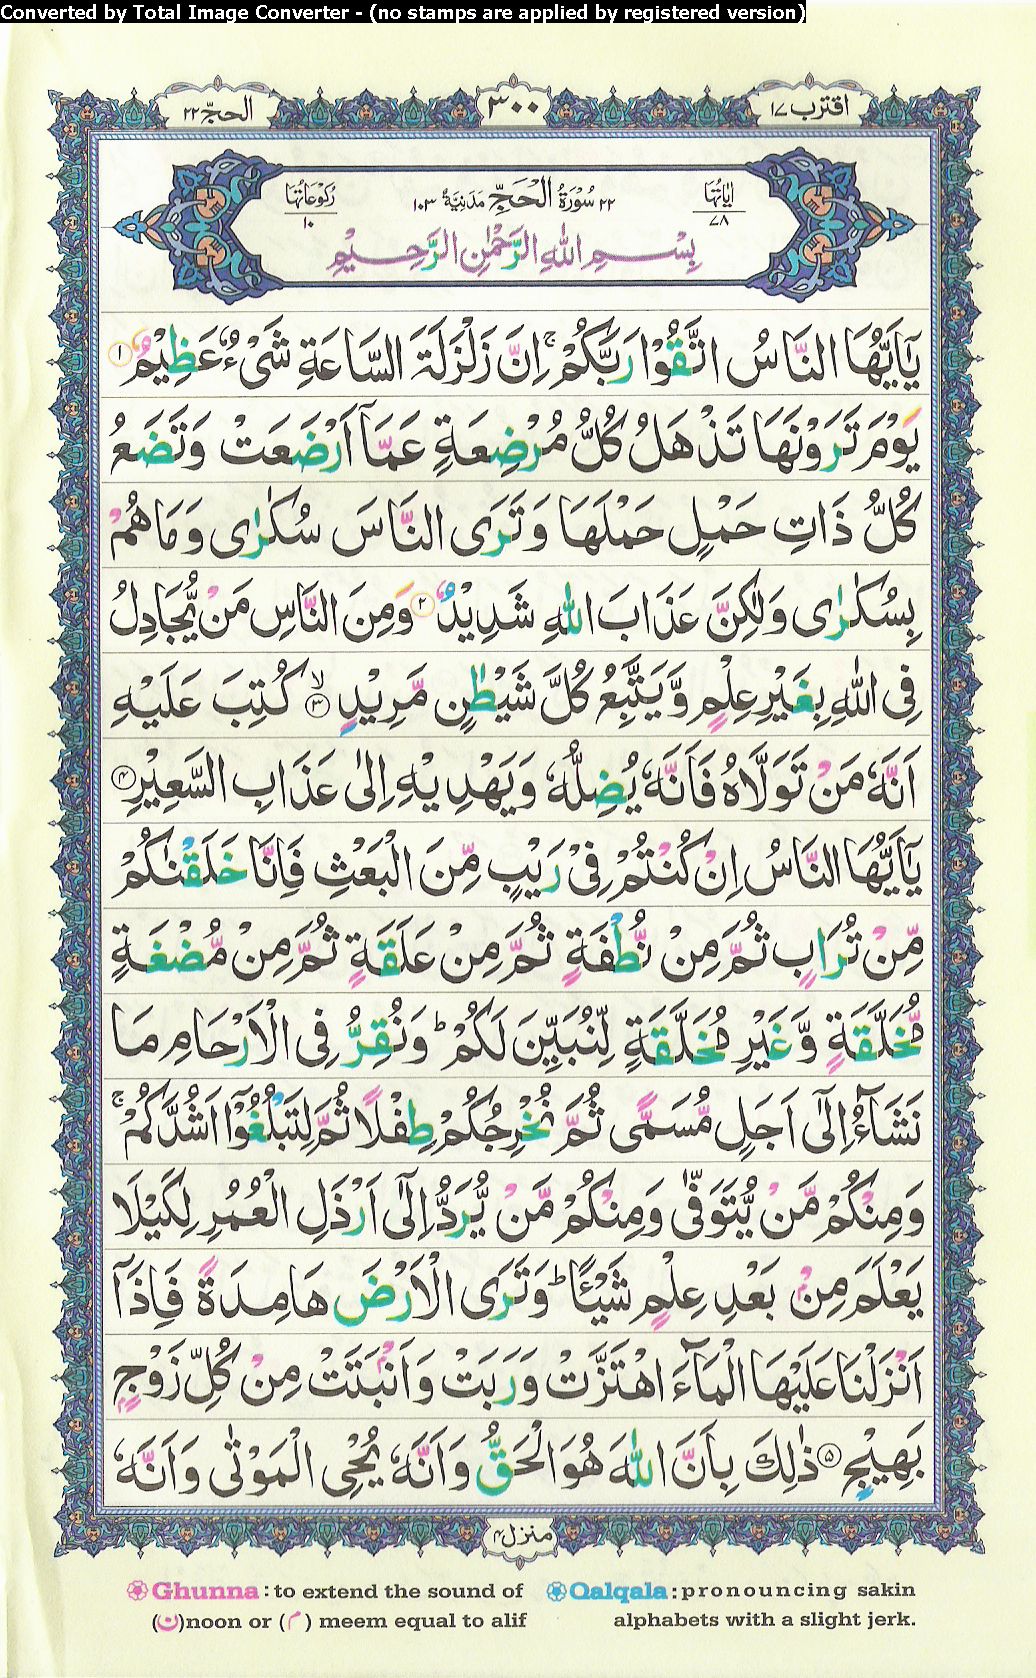 Converted by Total Image Converter - (no stamps are applied by registered version)
اقترب ١٧
٣٠٠
الحجّ ٢٢
اٰیَاتُهَا ٧٨
٢٢ سُوْرَةُ الْحَجِّ مَدَنِيَّةٌ ١٠٣
رُكُوْعَاتُهَا ١٠
بِسْمِ اللهِ الرَّحْمٰنِ الرَّحِيْمِ
يٰۤاَيُّهَا النَّاسُ اتَّقُوْا رَبَّكُمْ ۚ اِنَّ زَلْزَلَةَ السَّاعَةِ شَيْءٌ عَظِيْمٌ ١
يَوْمَ تَرَوْنَهَا تَذْهَلُ كُلُّ مُرْضِعَةٍ عَمَّاۤ اَرْضَعَتْ وَتَضَعُ
كُلُّ ذَاتِ حَمْلٍ حَمْلَهَا وَتَرَى النَّاسَ سُكٰرٰى وَمَا هُمْ
بِسُكٰرٰى وَلٰكِنَّ عَذَابَ اللهِ شَدِيْدٌ ٢ وَمِنَ النَّاسِ مَنْ يُّجَادِلُ
فِى اللهِ بِغَيْرِ عِلْمٍ وَّيَتَّبِعُ كُلَّ شَيْطٰنٍ مَّرِيْدٍ ۙ ٣ كُتِبَ عَلَيْهِ
اَنَّهٗ مَنْ تَوَلَّاهُ فَاَنَّهٗ يُضِلُّهٗ وَيَهْدِيْهِ اِلٰى عَذَابِ السَّعِيْرِ ٤
يٰۤاَيُّهَا النَّاسُ اِنْ كُنْتُمْ فِيْ رَيْبٍ مِّنَ الْبَعْثِ فَاِنَّا خَلَقْنٰكُمْ
مِّنْ تُرَابٍ ثُمَّ مِنْ نُّطْفَةٍ ثُمَّ مِنْ عَلَقَةٍ ثُمَّ مِنْ مُّضْغَةٍ
مُّخَلَّقَةٍ وَّغَيْرِ مُخَلَّقَةٍ لِّنُبَيِّنَ لَكُمْ ؕ وَنُقِرُّ فِى الْاَرْحَامِ مَا
نَشَآءُ اِلٰۤى اَجَلٍ مُّسَمًّى ثُمَّ نُخْرِجُكُمْ طِفْلًا ثُمَّ لِتَبْلُغُوْۤا اَشُدَّكُمْ ۚ
وَمِنْكُمْ مَّنْ يُّتَوَفّٰى وَمِنْكُمْ مَّنْ يُّرَدُّ اِلٰۤى اَرْذَلِ الْعُمُرِ لِكَيْلَا
يَعْلَمَ مِنْۢ بَعْدِ عِلْمٍ شَيْـًٔا ؕ وَتَرَى الْاَرْضَ هَامِدَةً فَاِذَاۤ
اَنْزَلْنَا عَلَيْهَا الْمَآءَ اهْتَزَّتْ وَرَبَتْ وَاَنْۢبَتَتْ مِنْ كُلِّ زَوْجٍۭ
بَهِيْجٍ ٥ ذٰلِكَ بِاَنَّ اللهَ هُوَ الْحَقُّ وَاَنَّهٗ يُحْيِ الْمَوْتٰى وَاَنَّهٗ
منزل ٤
Ghunna : to extend the sound of (ن)noon or (م) meem equal to alif
Qalqala : pronouncing sakin alphabets with a slight jerk.